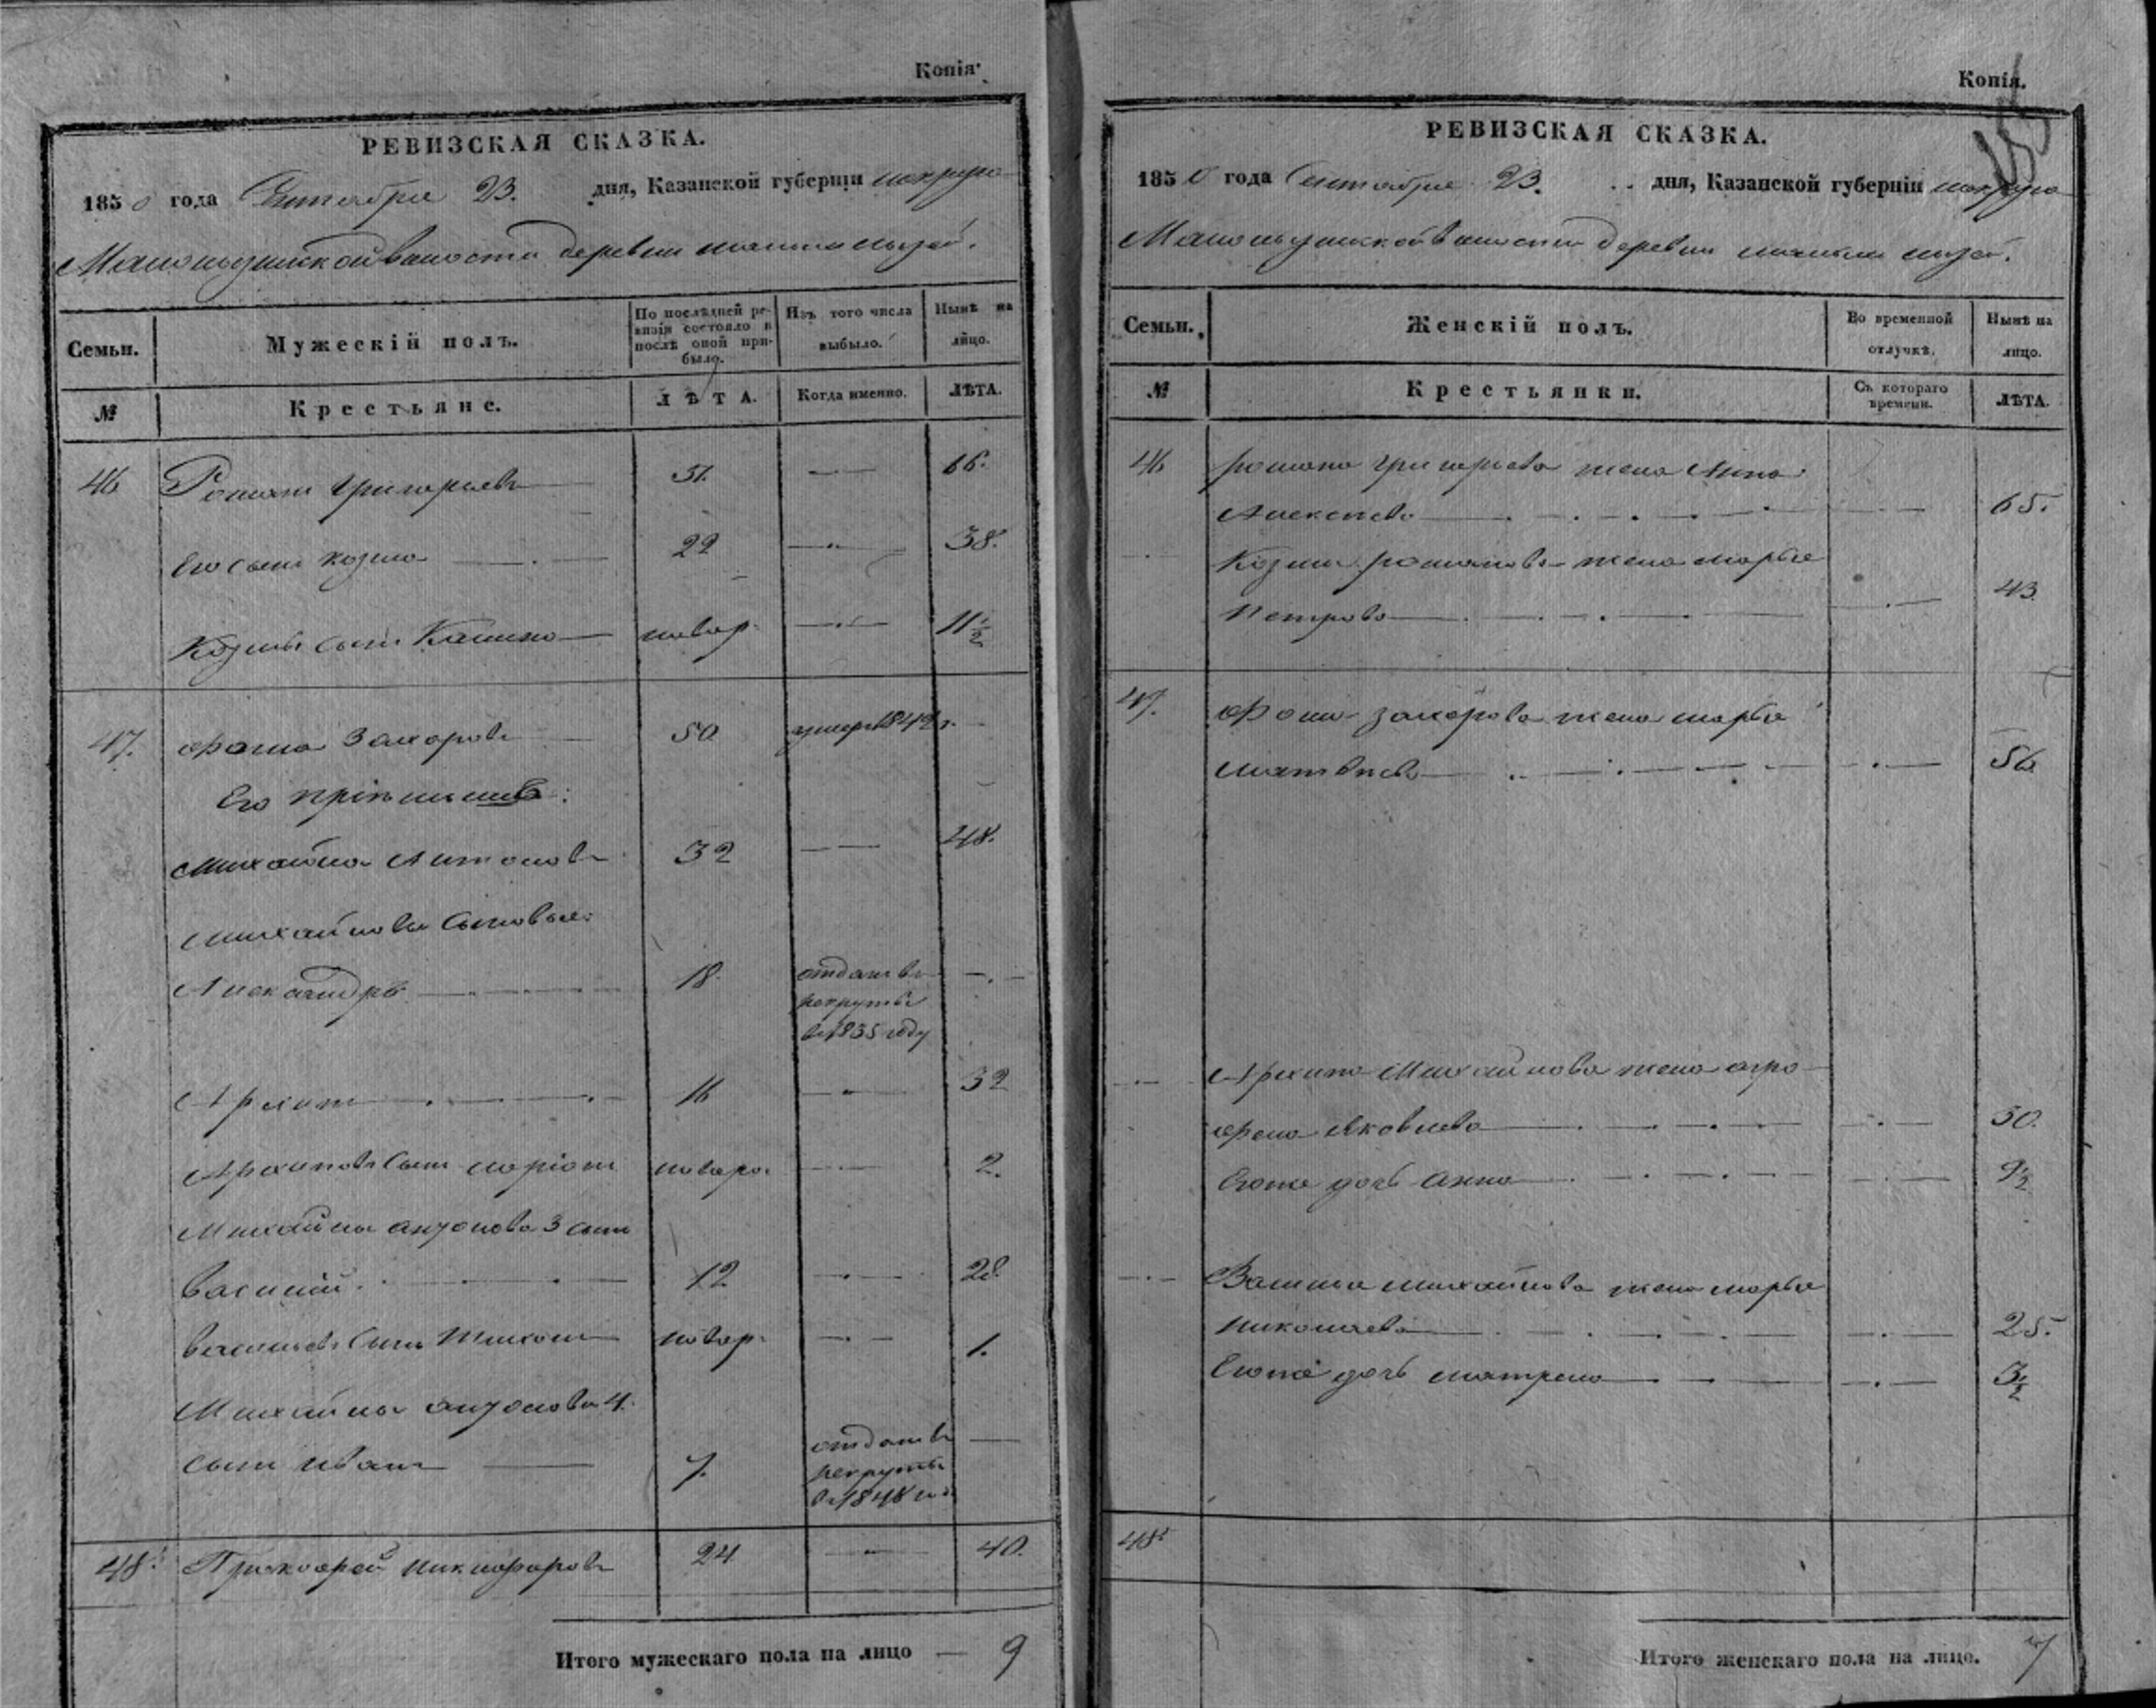 Копія.
РЕВИЗСКАЯ СКАЗКА.
1850 года Сентября 23. дня, Казанской губерніи
волости деревни
Семьи.
Мужескій полъ.
По послѣдней ревизіи состояло и послѣ оной прибыло.
Изъ того числа выбыло.
Нынѣ на лицо.
№
Крестьяне.
ЛѢТА.
Когда именно.
ЛѢТА.
46 Роман Григорьевъ 51. 66.
Его сынъ Козма 22 38.
Козмы сынъ новор. 11 1/2
47. Фома Захаровъ 50 умеръ г.
Его пріемышъ:
Михайла Антоновъ 32 48.
Михайловы сыновья:
Александръ 18. отданъ въ
рекруты
въ 1835 году
Архипъ 16 32
Архиповъ сынъ новоро. 2.
Михайлы Антонова 3 сынъ
Василій. 12 28.
Васильевъ сынъ Тихонъ новор. 1.
Михайлы Антонова 4.
сынъ Иванъ 7. отданъ въ
рекруты
48. Никифоровъ 24 40.
Итого мужескаго пола на лицо — 9
Копія.
РЕВИЗСКАЯ СКАЗКА.
1850 года Сентября 23. дня, Казанской губерніи
волости деревни
Семьи.
Женскій полъ.
Во временной отлучкѣ.
Нынѣ на лицо.
№
Крестьянки.
Съ котораго времени.
ЛѢТА.
46 Романа Григорьева жена Анна
Алексеева 65.
Козмы Романова жена Марья
Петрова 43
47. Фомы Захарова жена Марья
Матвеева 56
Архипа Михайлова жена Агра-
фена Яковлева 30.
Егоже дочь Анна 9 1/2
Василья Михайлова жена Марья
Николаева 25.
Егоже дочь Матрена 3 1/2
48.
Итого женскаго пола на лицо. 7